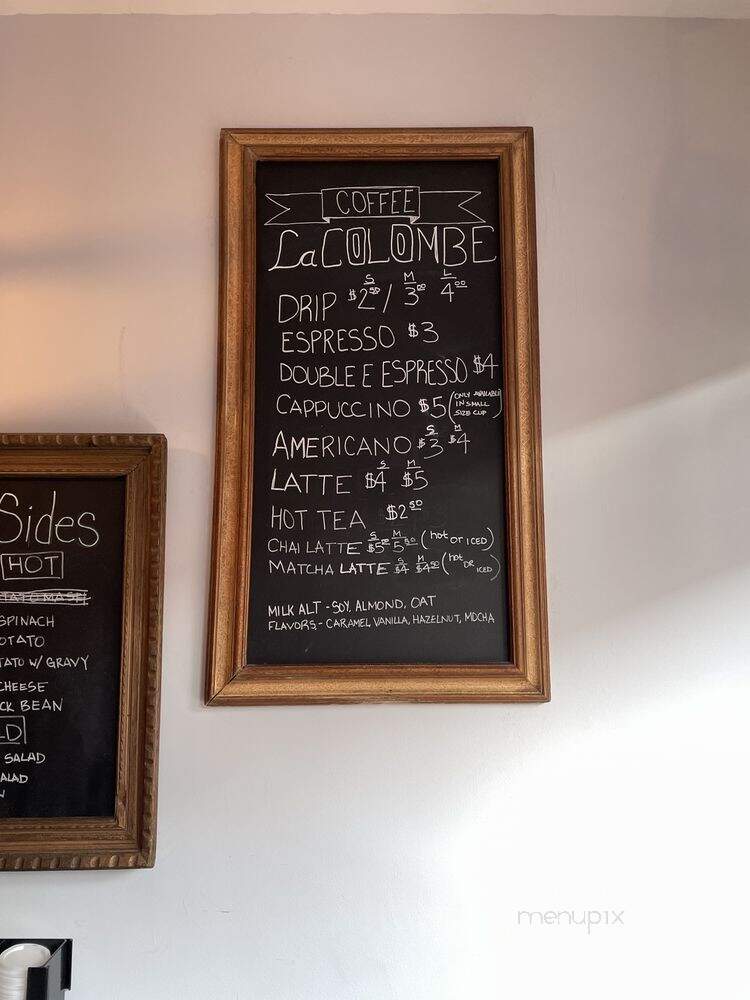 COFFEE
La COLOMBE
S M L
DRIP $2.50 / 3.00 4.00
ESPRESSO $3
DOUBLE E ESPRESSO $4
CAPPUCCINO $5 (ONLY AVAILABLE
IN SMALL
SIZE CUP)
S M
AMERICANO $3 $4
S M
LATTE $4 $5
HOT TEA $2.50
S M
CHAI LATTE 5.50 (hot or ICED)
S M
MATCHA LATTE $4 $4.50 (hot
OR ICED)
MILK ALT - SOY, ALMOND, OAT
FLAVORS - CARAMEL, VANILLA, HAZELNUT, MOCHA
Sides
HOT
SPINACH
OTATO
TATO W/ GRAVY
CHEESE
CK BEAN
LD
SALAD
ALAD
menupix